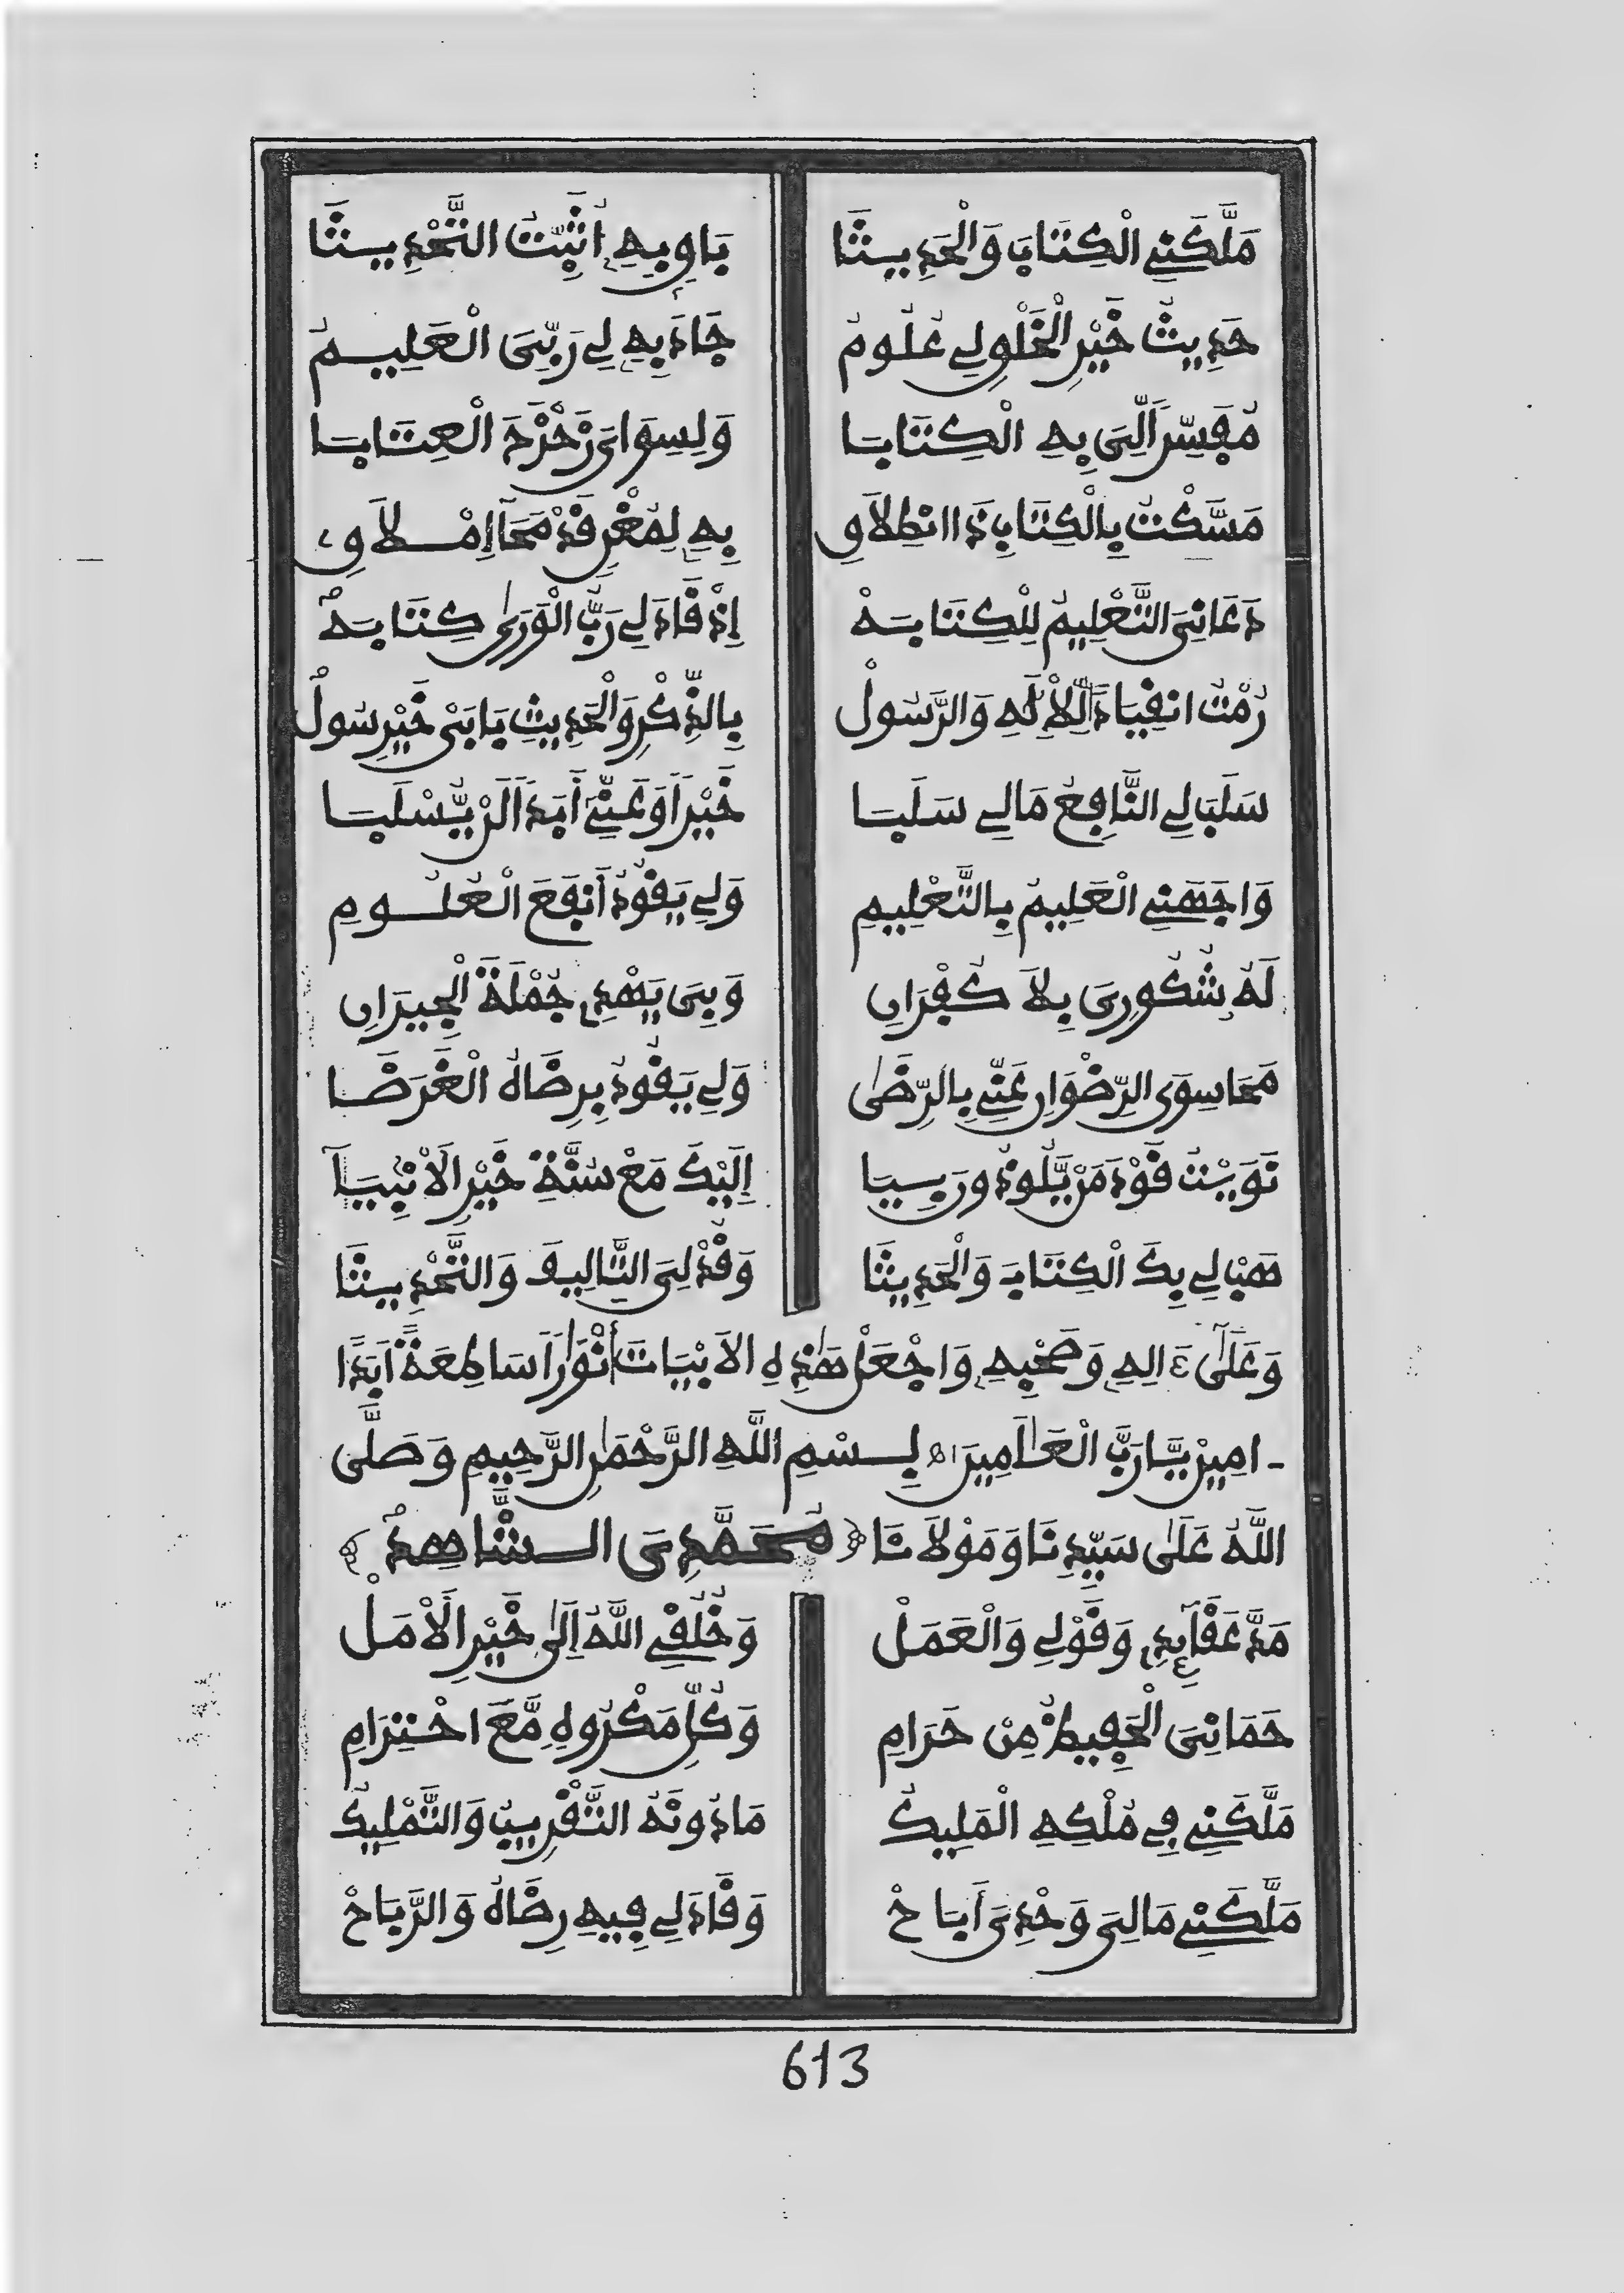 مَلَّكَنِے الْكِتَابَ وَالْحَدِيثَا بَاوٍ بِهِ أُثَبِّتُ التَّحْدِيثَا
حَدِيثُ خَيْرِ الْخَلْقِ لِے عُلُومُ جَادَ بِهِ لِے رَبِّيَ الْعَلِيمُ
مُفَسِّرٌ اِلَىَّ بِهِ الْكِتَابَا وَلِسِوَايَ زَحْزَحَ الْعِتَابَا
مَسَّكْتُ بِالْكِتَابِ ذَا انْطِلَاقِ بِهِ لِمُغْرِقٍ مَحَا إِمْلَاقِ
دَعَانِيَ التَّعْلِيمُ لِلْكِتَابَهْ إِذْ قَادَ لِے رَبُّ الْوَرَىٰ كِتَابَهُ
رُمْتُ انْقِيَادَ الِلْإِلَٰهِ وَالرَّسُولْ بِالذِّكْرِ وَالْحَدِيثِ يَا بَنِى خَيْرِ سُولْ
سَلَبَ لِے النَّافِعُ مَا لِے سَلَبَا خَيْراً وَعَنِّے أَبَداً لَنْ يُّسْلَبَا
وَاجَهَنِے الْعَلِيمُ بِالتَّعْلِيمِ وَلِے يَقُودُ أَنْفَعَ الْعُلُومِ
لَهُ شُكُورِيَ بِلَا كُفْرَانِ وَبِيَ يَهْدِ جُمْلَةَ الْجِيرَانِ
مَحَا سِوَى الرِّضْوَانِ عَنِّے بِالرِّضَىٰ وَلِے يَقُودُ بِرِضَاهُ الْغَرَضَا
نَوَيْتُ قَوْدَ مَنْ يَّلُوذُ رَبِيَا إِلَيْكَ مَعْ سُنَّةِ خَيْرِ الْأَنْبِيَا
هَبْ لِے بِكَ الْكِتَابَ وَالْحَدِيثَا وَقُدْ لِيَ التَّالِيفَ وَالتَّحْدِيثَا
وَعَلَىٰ ءَالِهِ وَصَحْبِهِ وَاجْعَلْ هَٰذِهِ الْأَبْيَاتَ أَنْوَاراً سَاطِعَةً أَبَداً
ـامِينْ يَّا رَبَّ الْعَٰلَمِينَ اه بِسْمِ اللَّهِ الرَّحْمَٰنِ الرَّحِيمِ وَصَلَّى
اللَّهُ عَلَىٰ سَيِّدِنَا وَمَوْلَانَا ﴿ مُحَمَّدِنِ الشَّاهِدُ ﴾
مَدَّ عَقَآئِدِ وَقَوْلِے وَالْعَمَلْ وَخُلُقِے اللَّهُ إِلَىٰ خَيْرِ الْأَمَلْ
حَمَانِيَ الْحَفِيظُ مِنْ حَرَامِ وَكُلِّ مَكْرُوهٍ مَّعَ احْتِرَامِ
مَلَّكَنِے فِے مُلْكِهِ الْمَلِيكُ مَا دُونَهُ التَّقْرِيبُ وَالتَّمْلِيكُ
مَلَّكَنِے مَا لِيَ وَحْدِيَ أَبَاحْ وَقَادَ لِے فِيهِ رِضَاهُ وَالرَّبَاحْ
613